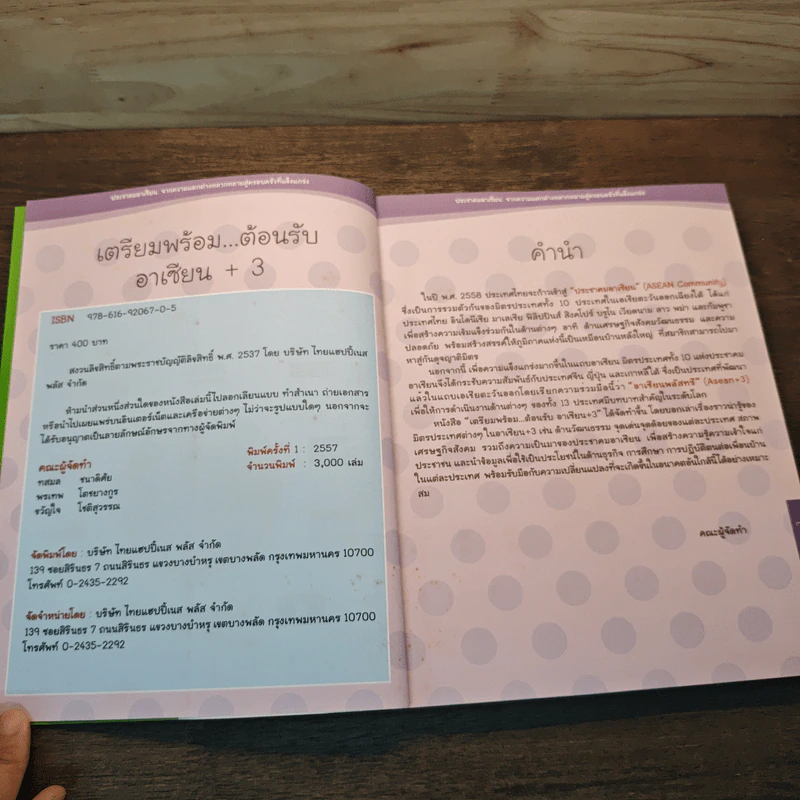 ประชาคมอาเซียน จากความแตกต่างหลากหลายสู่ครอบครัวที่แข็งแกร่ง
เตรียมพร้อม...ต้อนรับ
อาเซียน + 3
ISBN 978-616-92067-0-5
ราคา 400 บาท
สงวนลิขสิทธิ์ตามพระราชบัญญัติลิขสิทธิ์ พ.ศ. 2537 โดย บริษัท ไทยแฮปปี้เนส
พลัส จำกัด
ห้ามนำส่วนหนึ่งส่วนใดของหนังสือเล่มนี้ไปลอกเลียนแบบ ทำสำเนา ถ่ายเอกสาร
หรือนำไปเผยแพร่บนอินเตอร์เน็ตและเครือข่ายต่างๆ ไม่ว่าจะรูปแบบใดๆ นอกจากจะ
ได้รับอนุญาตเป็นลายลักษณ์อักษรจากทางผู้จัดพิมพ์
พิมพ์ครั้งที่ 1 : 2557
จำนวนพิมพ์ : 3,000 เล่ม
คณะผู้จัดทำ
ทสมล ชนาดิศัย
พรเทพ โตชยางกูร
ขวัญใจ โชติสุวรรณ
จัดพิมพ์โดย : บริษัท ไทยแฮปปี้เนส พลัส จำกัด
139 ซอยสิรินธร 7 ถนนสิรินธร แขวงบางบำหรุ เขตบางพลัด กรุงเทพมหานคร 10700
โทรศัพท์ 0-2435-2292
จัดจำหน่ายโดย : บริษัท ไทยแฮปปี้เนส พลัส จำกัด
139 ซอยสิรินธร 7 ถนนสิรินธร แขวงบางบำหรุ เขตบางพลัด กรุงเทพมหานคร 10700
โทรศัพท์ 0-2435-2292
ประชาคมอาเซียน จากความแตกต่างหลากหลายสู่ครอบครัวที่แข็งแกร่ง
คำนำ
ในปี พ.ศ. 2558 ประเทศไทยจะก้าวเข้าสู่ "ประชาคมอาเซียน" (ASEAN Community)
ซึ่งเป็นการรวมตัวกันของมิตรประเทศทั้ง 10 ประเทศในเอเชียตะวันออกเฉียงใต้ ได้แก่
ประเทศไทย อินโดนีเซีย มาเลเซีย ฟิลิปปินส์ สิงคโปร์ บรูไน เวียดนาม ลาว พม่า และกัมพูชา
เพื่อสร้างความเข้มแข็งร่วมกันในด้านต่างๆ อาทิ ด้านเศรษฐกิจสังคมวัฒนธรรม และความ
ปลอดภัย พร้อมสร้างสรรค์ให้ภูมิภาคแห่งนี้เป็นเหมือนบ้านหลังใหญ่ ที่สมาชิกสามารถไปมา
หาสู่กันดุจญาติมิตร
นอกจากนี้ เพื่อความแข็งแกร่งมากขึ้นในแถบอาเซียน มิตรประเทศทั้ง 10 แห่งประชาคม
อาเซียนจึงได้กระชับความสัมพันธ์กับประเทศจีน ญี่ปุ่น และเกาหลีใต้ ซึ่งเป็นประเทศที่พัฒนา
แล้วในแถบเอเชียตะวันออกโดยเรียกความร่วมมือนี้ว่า "อาเซียนพลัสทรี" (Asean+3)
เพื่อให้การดำเนินงานด้านต่างๆ ของทั้ง 13 ประเทศมีบทบาทสำคัญในระดับโลก
หนังสือ "เตรียมพร้อม...ต้อนรับ อาเซียน+3" ได้จัดทำขึ้น โดยบอกเล่าเรื่องราวน่ารู้ของ
มิตรประเทศต่างๆ ในอาเซียน+3 เช่น ด้านวัฒนธรรม จุดเด่นจุดด้อยของแต่ละประเทศ สภาพ
เศรษฐกิจสังคม รวมถึงความเป็นมาของประชาคมอาเซียน เพื่อสร้างความรู้ความเข้าใจแก่
ประชาชน และนำข้อมูลเพื่อใช้เป็นประโยชน์ในด้านธุรกิจ การศึกษา การปฏิบัติตนต่อเพื่อนบ้าน
ในแต่ละประเทศ พร้อมรับมือกับความเปลี่ยนแปลงที่จะเกิดขึ้นในอนาคตอันใกล้นี้ได้อย่างเหมาะ
สม
คณะผู้จัดทำ